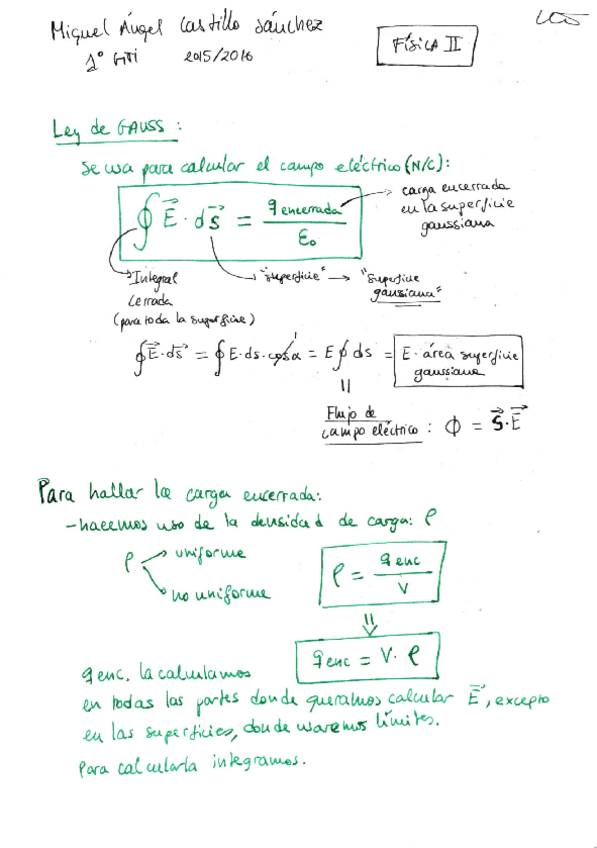 Miguel Ángel Castillo Sánchez
1º GITI 2015/2016
FÍSICA II
Ley de GAUSS :
Se usa para calcular el campo eléctrico (N/C):
∮ E⃗ · ds⃗ = q encerrada / ε₀
carga encerrada
en la superficie
gaussiana
Integral
cerrada
(para toda la superficie)
"superficie" → "superficie
gaussiana"
∮ E⃗ · ds⃗ = ∮ E · ds · cos α = E ∮ ds = E · área superficie
gaussiana
1
||
Flujo de
campo eléctrico : ϕ = S⃗ · E⃗
Para hallar la carga encerrada:
- hacemos uso de la densidad de carga: ρ
ρ → uniforme
→ no uniforme
ρ = q enc / V
⇓
q enc = V · ρ
q enc. la calculamos
en todas las partes donde queramos calcular E⃗, excepto
en las superficies, donde usaremos límites.
Para calcularla integramos.